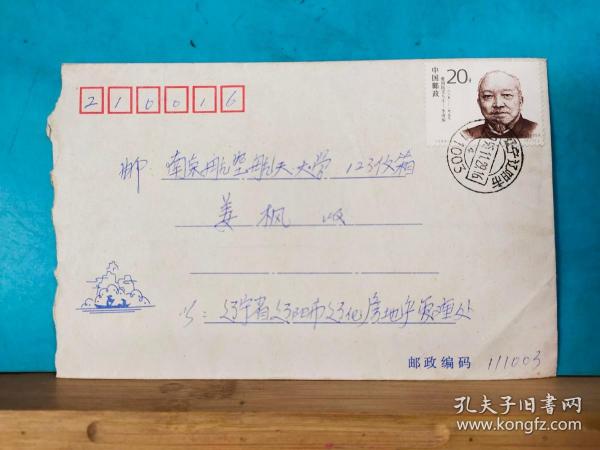 210016
中国邮政
20分
辽宁辽阳市
邮 南京航空航天大学 123信箱
姜 枫 收
辽宁省辽阳市辽化房地产管理处
邮政编码 111003
孔夫子旧书网
www.kongfz.com